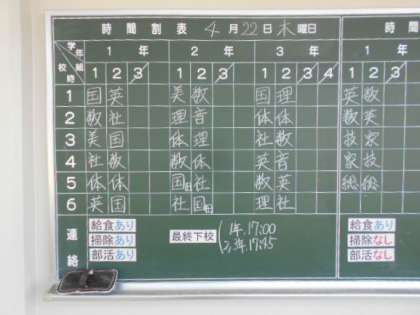 時間割表 4月22日木曜日 時間
学年 組 校時 1年 2年 3年 1
1 2 3 1 2 3 1 2 3 4 1 2 3
1 国 英 美 数 国 理 英 数
2 数 社 理 音 体 体 数 英
3 美 国 体 理 社 国 技 家
4 社 数 数 体 英 音 家 技
5 体 体 国 社 数 英 総 総
6 英 国 社 国 理 社
連絡 給食あり 最終下校 1年.17:00 給食あり
掃除あり 2,3年.17:45 掃除なし
部活あり 部活なし